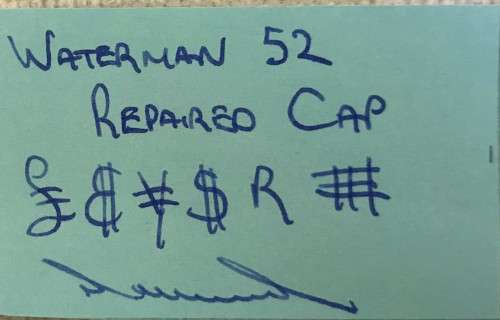 WATERMAN 52
REPAIRED CAP
£ $ ¥ $ R